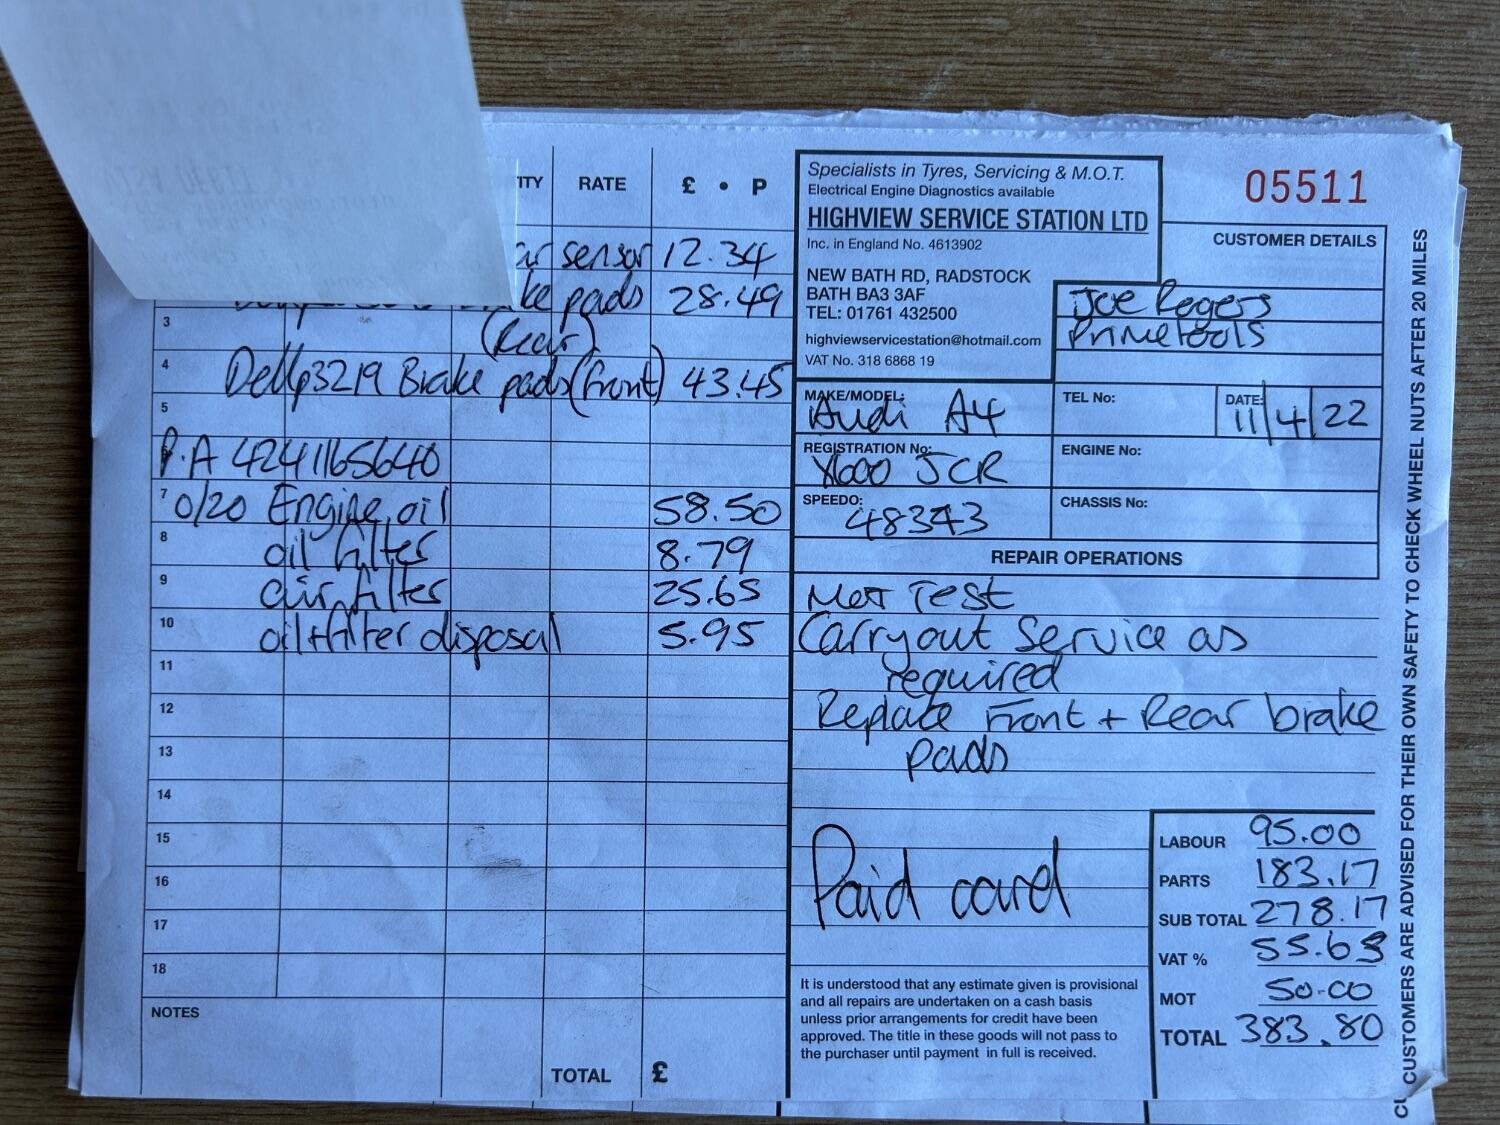 ITY RATE £ • P
ar sensor 12.34
ke pads 28.49
3 (Rear)
4 Dellp3219 Brake pads (front) 43.45
5
P.A 4241165640
7 0/20 Engine oil 58.50
8 oil filter 8.79
9 air filter 25.65
10 oil+filter disposal 5.95
11
12
13
14
15
16
17
18
NOTES
TOTAL £
Specialists in Tyres, Servicing & M.O.T.
Electrical Engine Diagnostics available
HIGHVIEW SERVICE STATION LTD
Inc. in England No. 4613902
NEW BATH RD, RADSTOCK
BATH BA3 3AF
TEL: 01761 432500
highviewservicestation@hotmail.com
VAT No. 318 6868 19
05511
CUSTOMER DETAILS
Joe Rogers
Primetools
MAKE/MODEL: Audi A4
TEL No:
DATE: 11/4/22
REGISTRATION No: X600 JCR
ENGINE No:
SPEEDO: 48343
CHASSIS No:
REPAIR OPERATIONS
Mot Test
Carryout Service as
required
Replace Front + Rear brake
pads
Paid card
It is understood that any estimate given is provisional
and all repairs are undertaken on a cash basis
unless prior arrangements for credit have been
approved. The title in these goods will not pass to
the purchaser until payment in full is received.
LABOUR 95.00
PARTS 183.17
SUB TOTAL 278.17
VAT % 55.63
MOT 50.00
TOTAL 383.80
CUSTOMERS ARE ADVISED FOR THEIR OWN SAFETY TO CHECK WHEEL NUTS AFTER 20 MILES